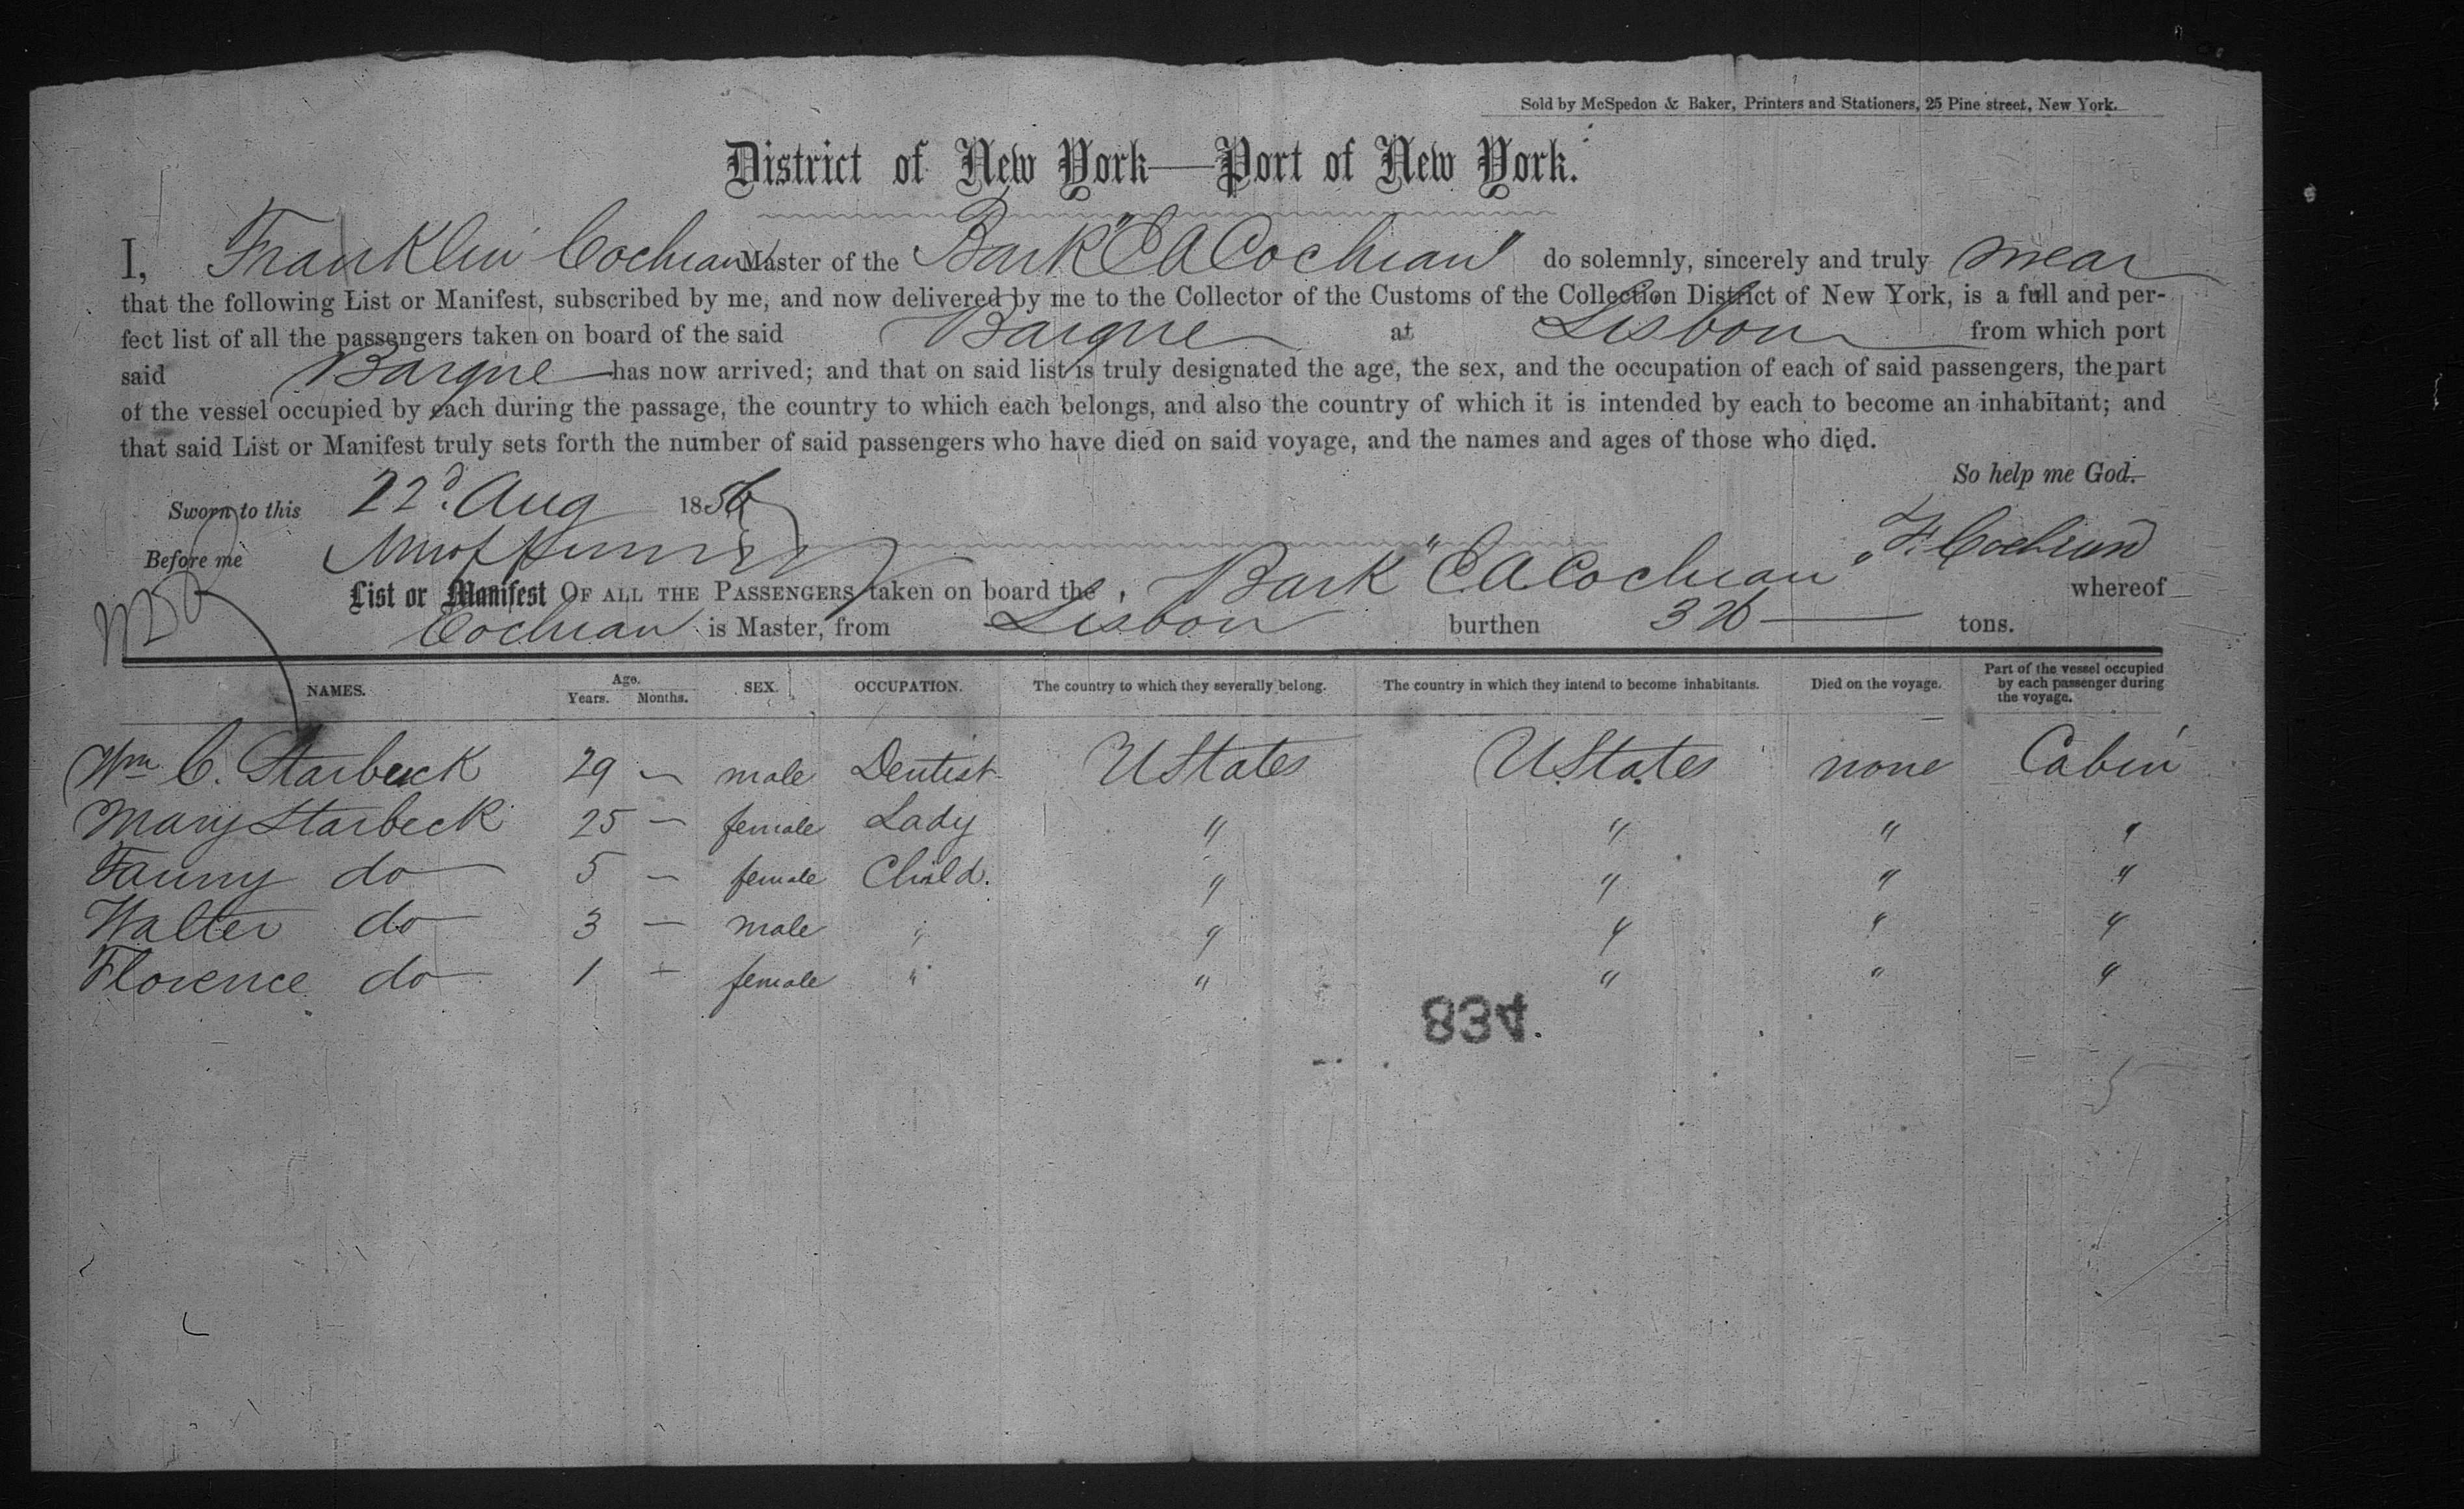 Sold by McSpedon & Baker, Printers and Stationers, 25 Pine street, New York.
District of New York—Port of New York.
I, Franklin Cochran Master of the Bark "E A Cochran" do solemnly, sincerely and truly swear
that the following List or Manifest, subscribed by me, and now delivered by me to the Collector of the Customs of the Collection District of New York, is a full and per-
fect list of all the passengers taken on board of the said Barque at Lisbon from which port
said Barque has now arrived; and that on said list is truly designated the age, the sex, and the occupation of each of said passengers, the part
of the vessel occupied by each during the passage, the country to which each belongs, and also the country of which it is intended by each to become an inhabitant; and
that said List or Manifest truly sets forth the number of said passengers who have died on said voyage, and the names and ages of those who died.
So help me God.
Sworn to this 22d. Aug 1856
Before me
F. Cochran
List or Manifest OF ALL THE PASSENGERS taken on board the Bark "E A Cochran" whereof
Cochran is Master, from Lisbon burthen tons.
NAMES. Age. Years. Months. SEX. OCCUPATION. The country to which they severally belong. The country in which they intend to become inhabitants. Died on the voyage. Part of the vessel occupied by each passenger during the voyage.
Wm C. Starbuck 29 — male Dentist UStates UStates none Cabin
Mary Starbeck 25 — female Lady " " " "
Fanny do 5 — female Child. " " " "
Walter do 3 — male " " " " "
Florence do 1 — female " " " " "
834.